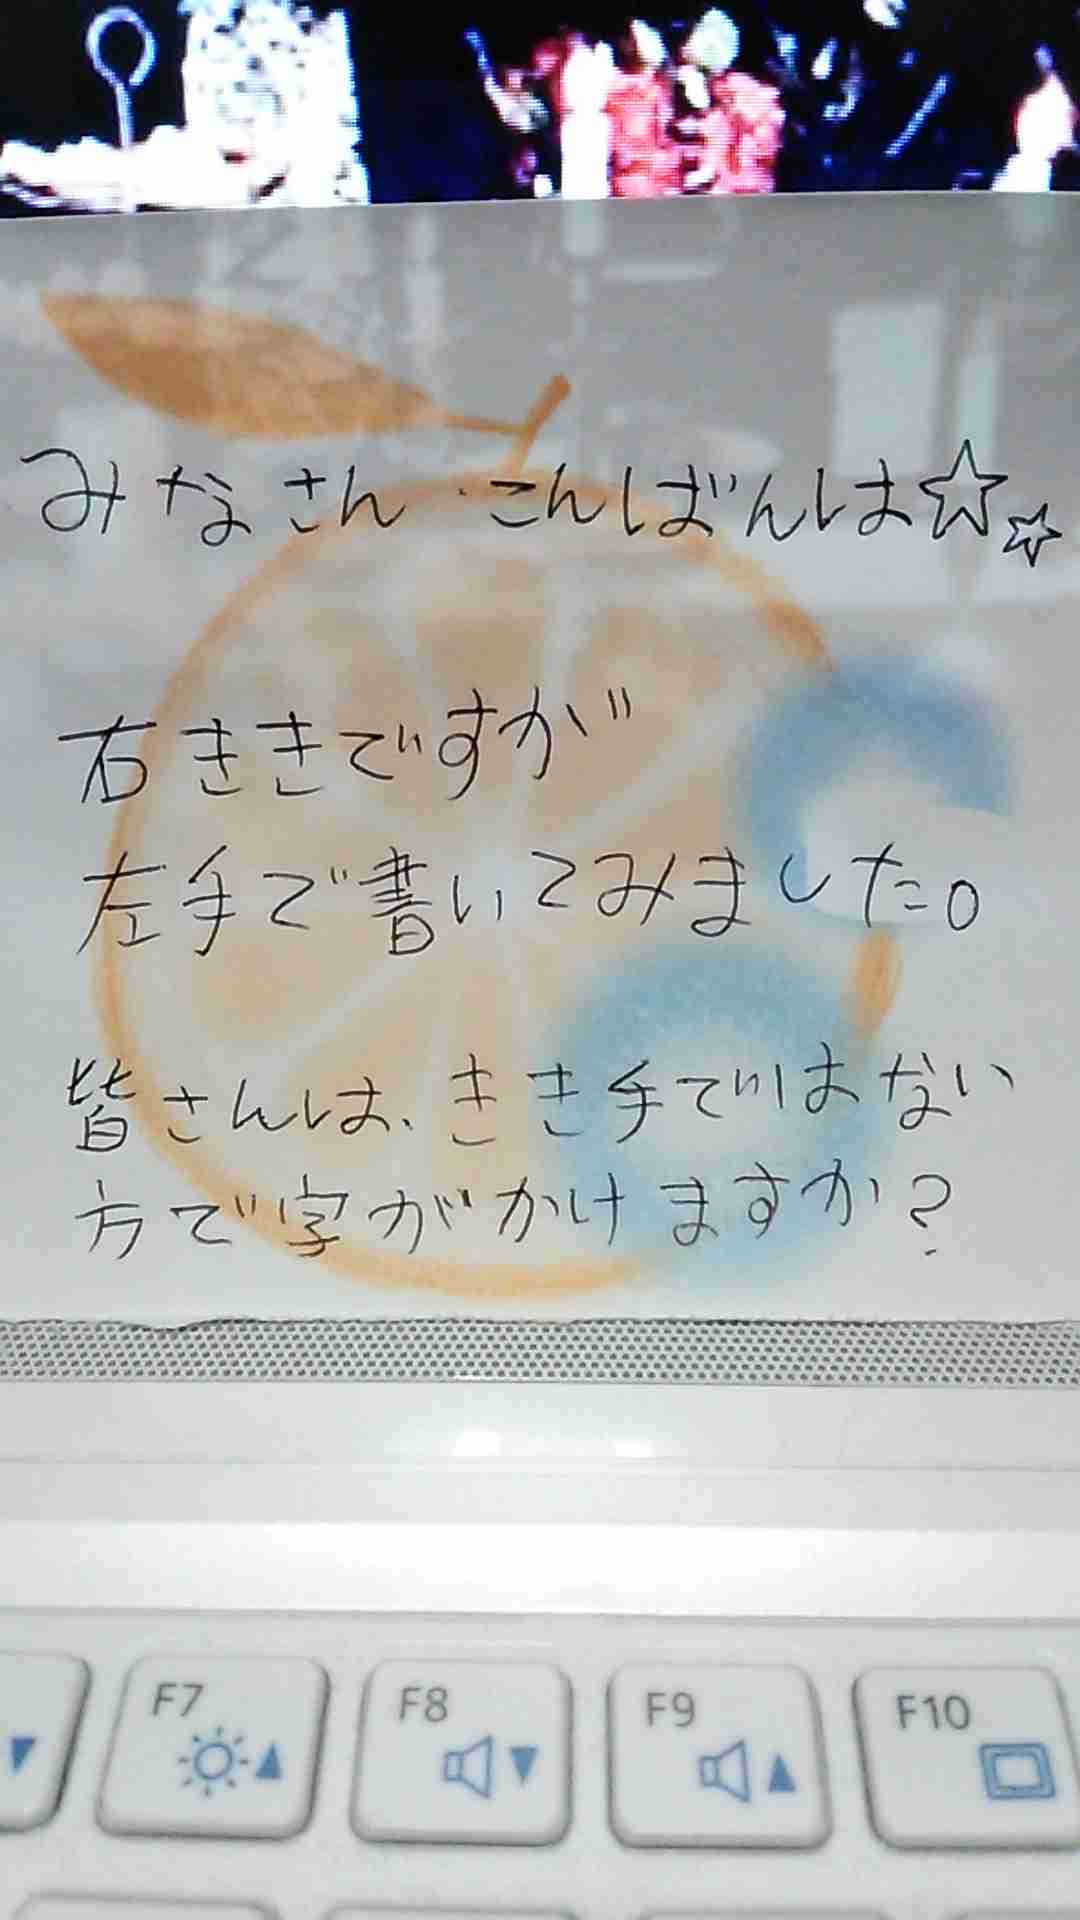 みなさん こんばんは☆☆
右ききですが
左手で書いてみました。
皆さんは、きき手ではない
方で字がかけますか?
F7 F8 F9 F10